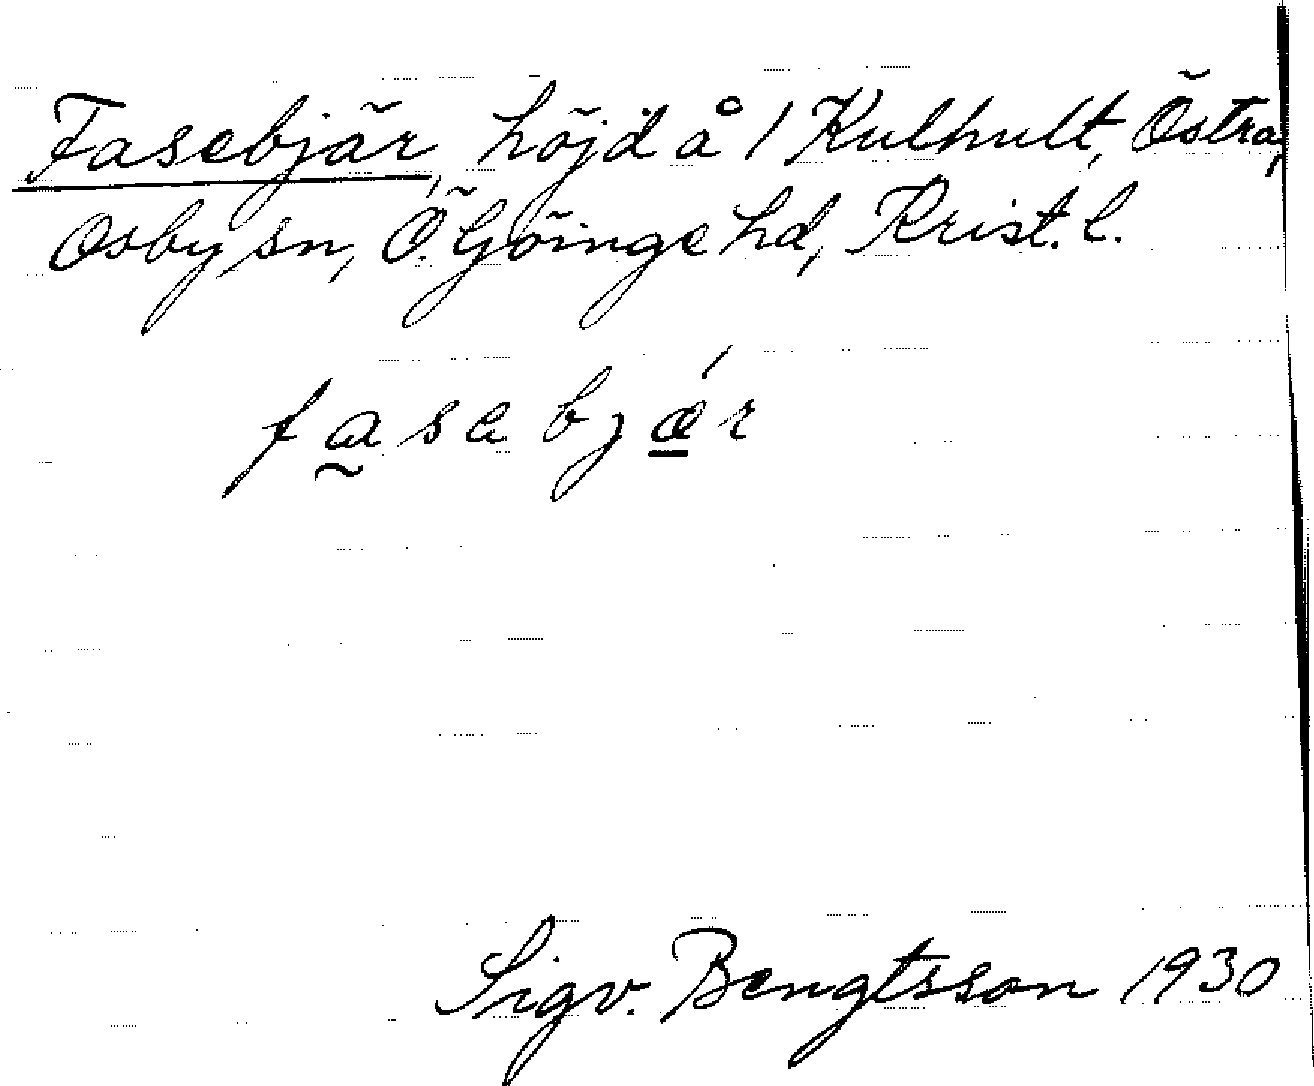 Fasebjär, höjd å 1 Kulhult, Östra,
Osby sn, Ö. Göinge hd, Krist. l.
fasebjær
Sigv. Bengtsson 1930